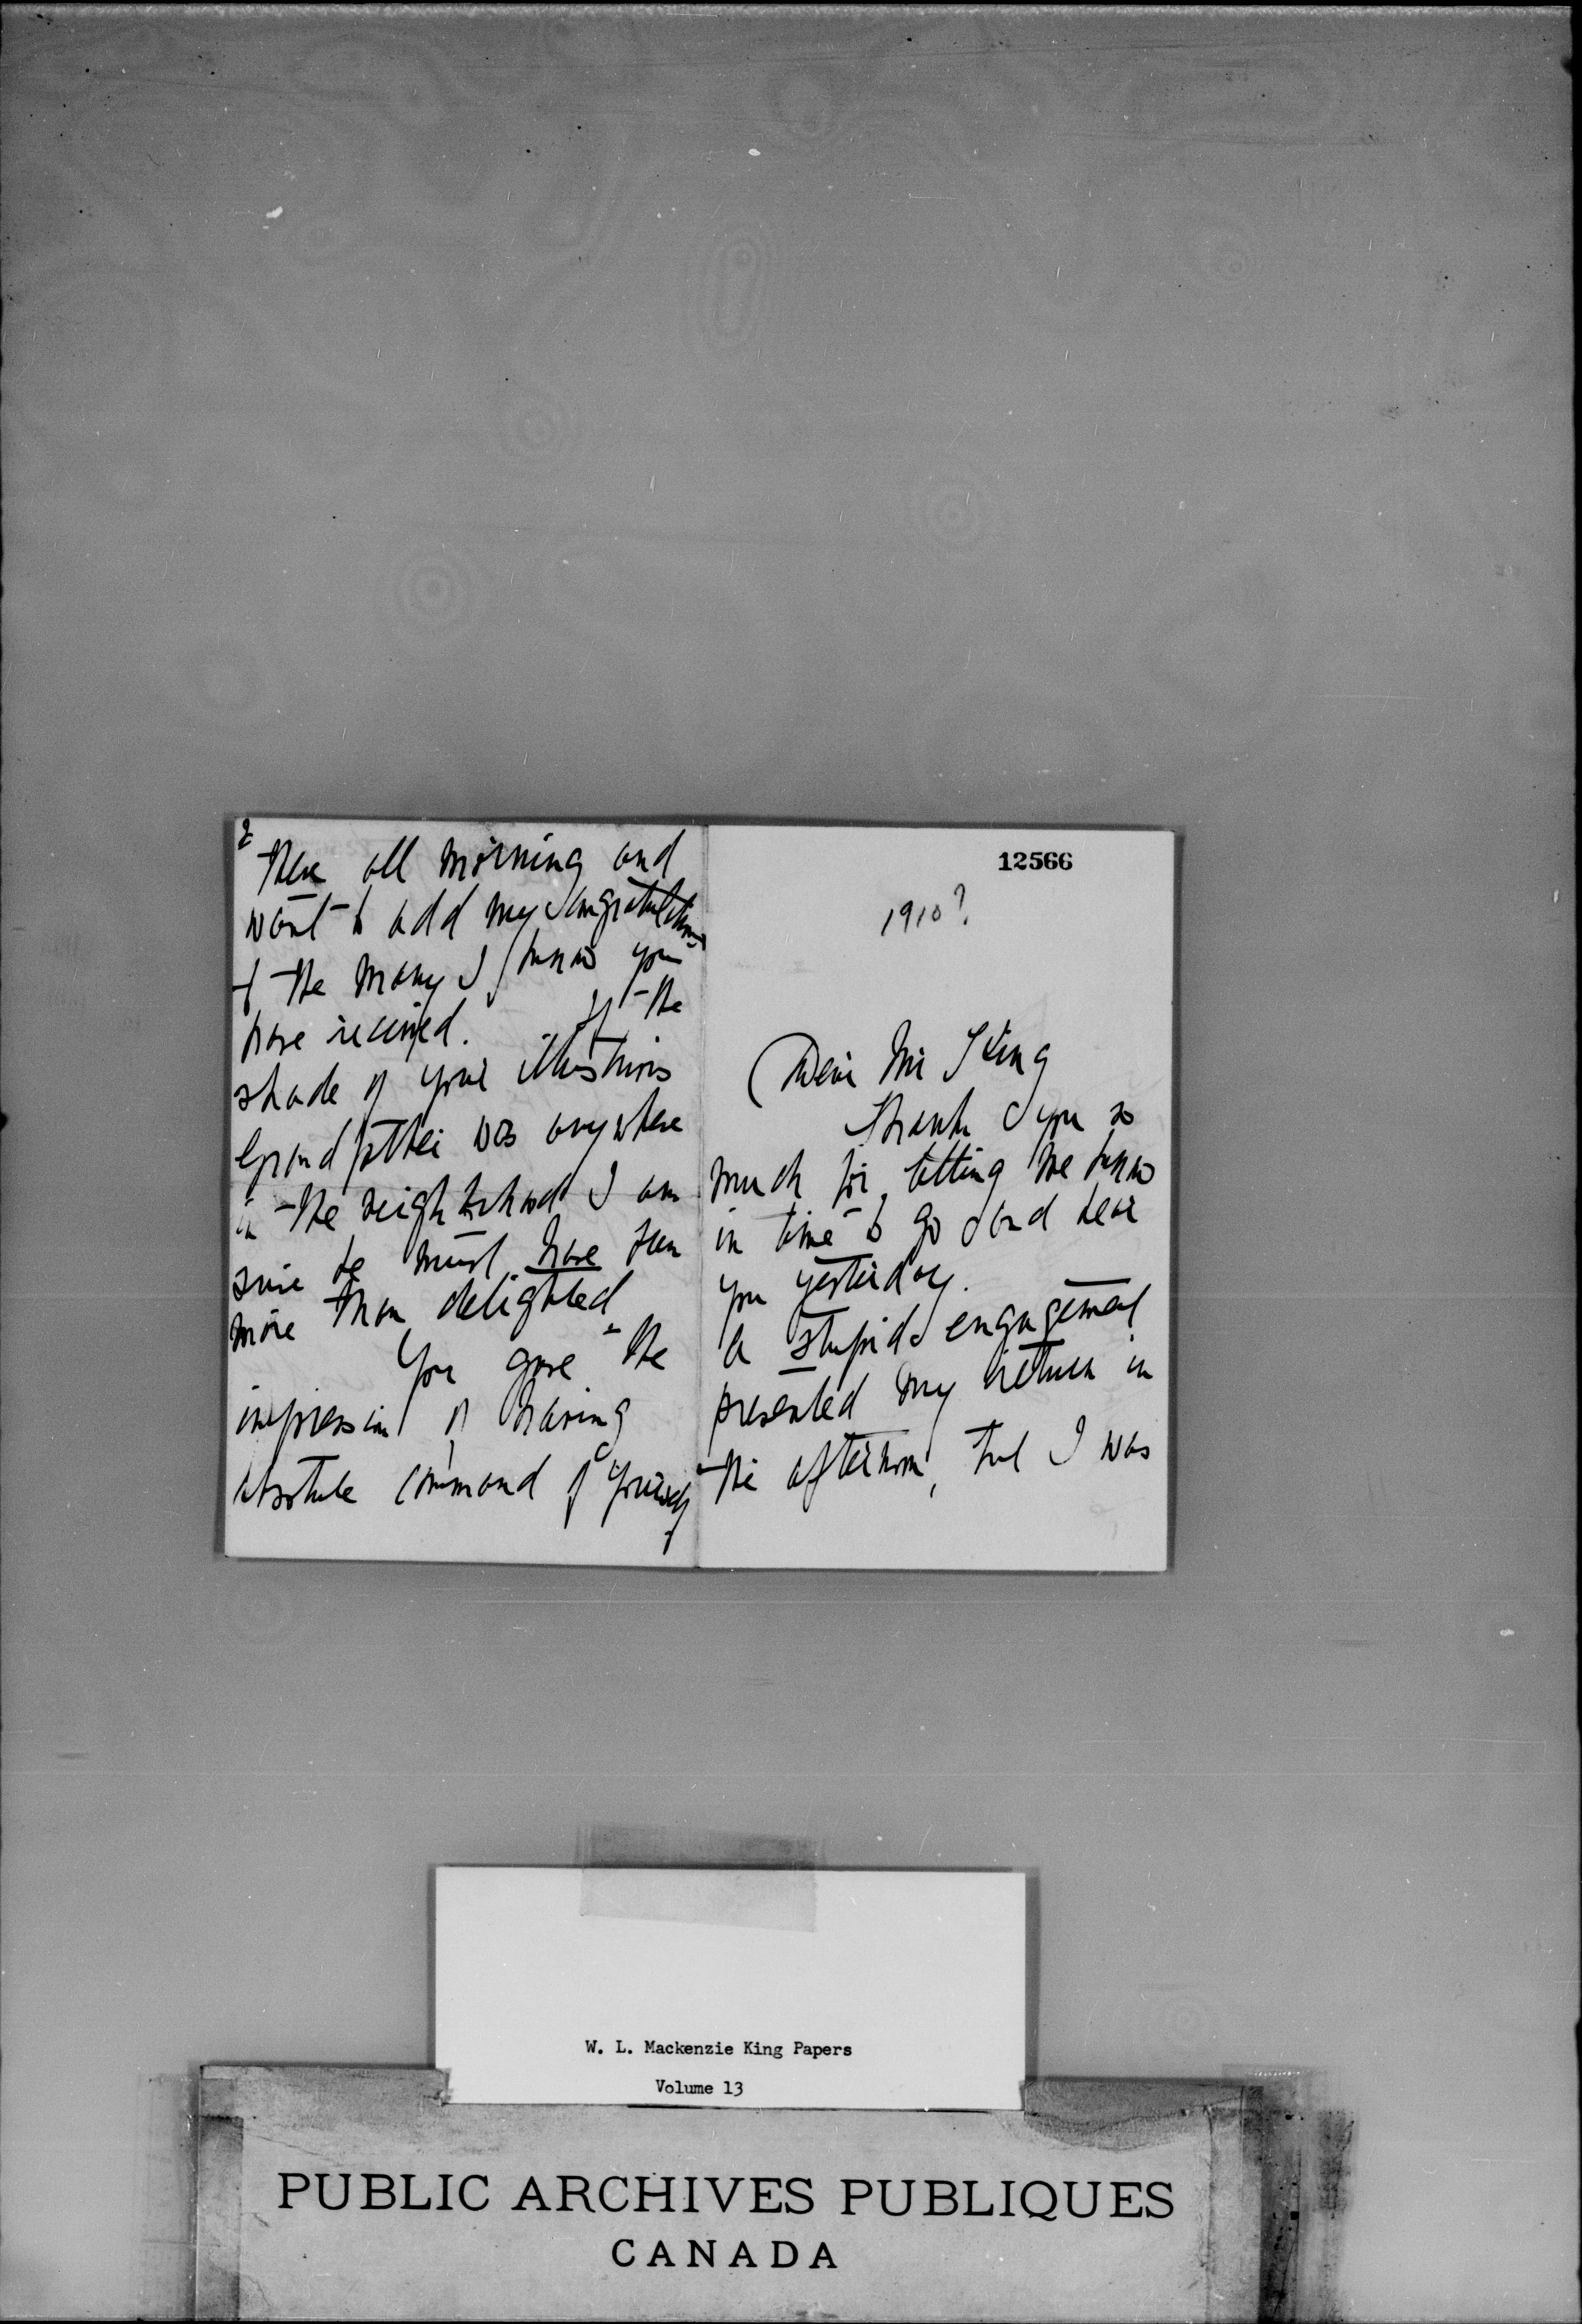 12566
1910?
Dear Mr King
Thank you so
much for letting me know
in time to go and hear
you yesterday.
A stupid engagement
prevented my return in
the afternoon, but I was
2
there all morning and
want to add my congratulations
to the many I know you
have received. If the
shade of your illustrious
Grandfather was anywhere
in the neighborhood I am
sure he must have been
more than delighted
You gave the
impression of having
absolute command of yourself
W. L. Mackenzie King Papers
Volume 13
PUBLIC ARCHIVES PUBLIQUES
CANADA